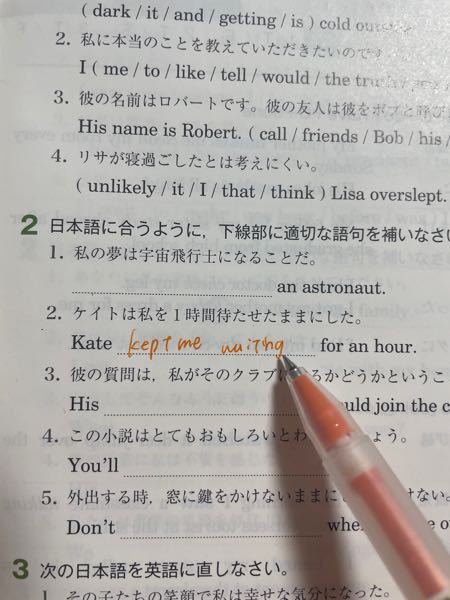 ( dark / it / and / getting / is ) cold
2. 私に本当のことを教えていただきたいのです
I ( me / to / like / tell / would / the
3. 彼の名前はロバートです。彼の友人は彼をボブと呼び
His name is Robert. ( call / friends / Bob / his /
4. リサが寝過ごしたとは考えにくい。
( unlikely / it / I / that / think ) Lisa overslept.
2 日本語に合うように，下線部に適切な語句を補いなさ
1. 私の夢は宇宙飛行士になることだ。
an astronaut.
2. ケイトは私を1時間待たせたままにした。
Kate kept me waiting for an hour.
3. 彼の質問は，私がそのクラブに るかどうかというこ
His uld join the c
4. この小説はとてもおもしろいとわ しょう。
You'll
5. 外出する時，窓に鍵をかけないままに けない。
Don't
3 次の日本語を英語に直しなさい。
1. その子たちの笑顔で私は幸せな気分になった。